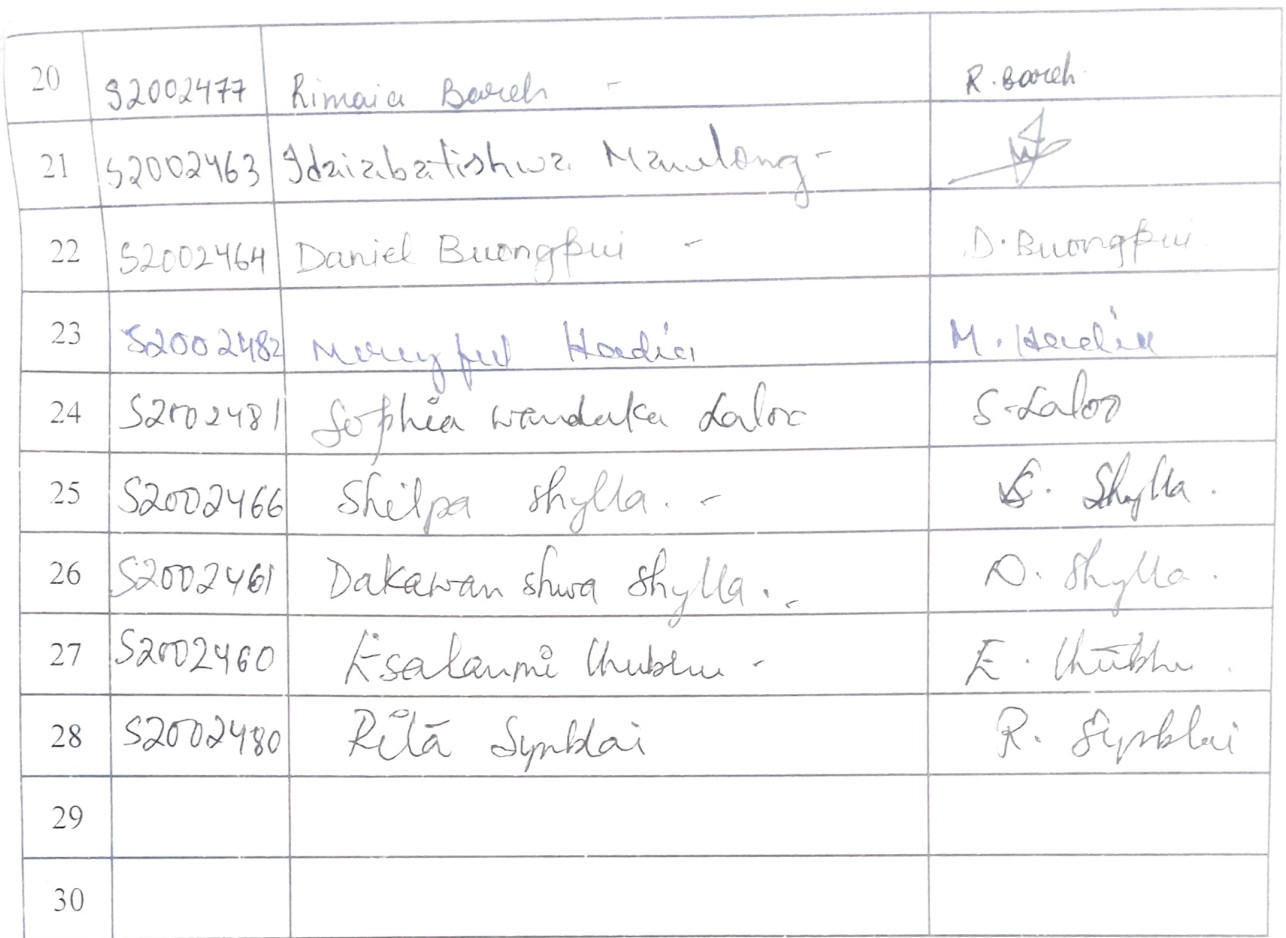 20 S2002477 Rimaia Bareh - R. Bareh
21 S2002463 Idaiabatishwa Mawlong -
22 S2002464 Daniel Buongpui - D. Buongpui
23 S2002482 Mercyful Hadia M. Hadia
24 S2002481 Sophia wandaka Laloo S. Laloo
25 S2002466 Shilpa Shylla. - S. Shylla.
26 S2002461 Dakawan shwa Shylla. - D. Shylla.
27 S2002460 Esalanmi - E.
28 S2002480 Rita Synblai R. Synblai
29
30